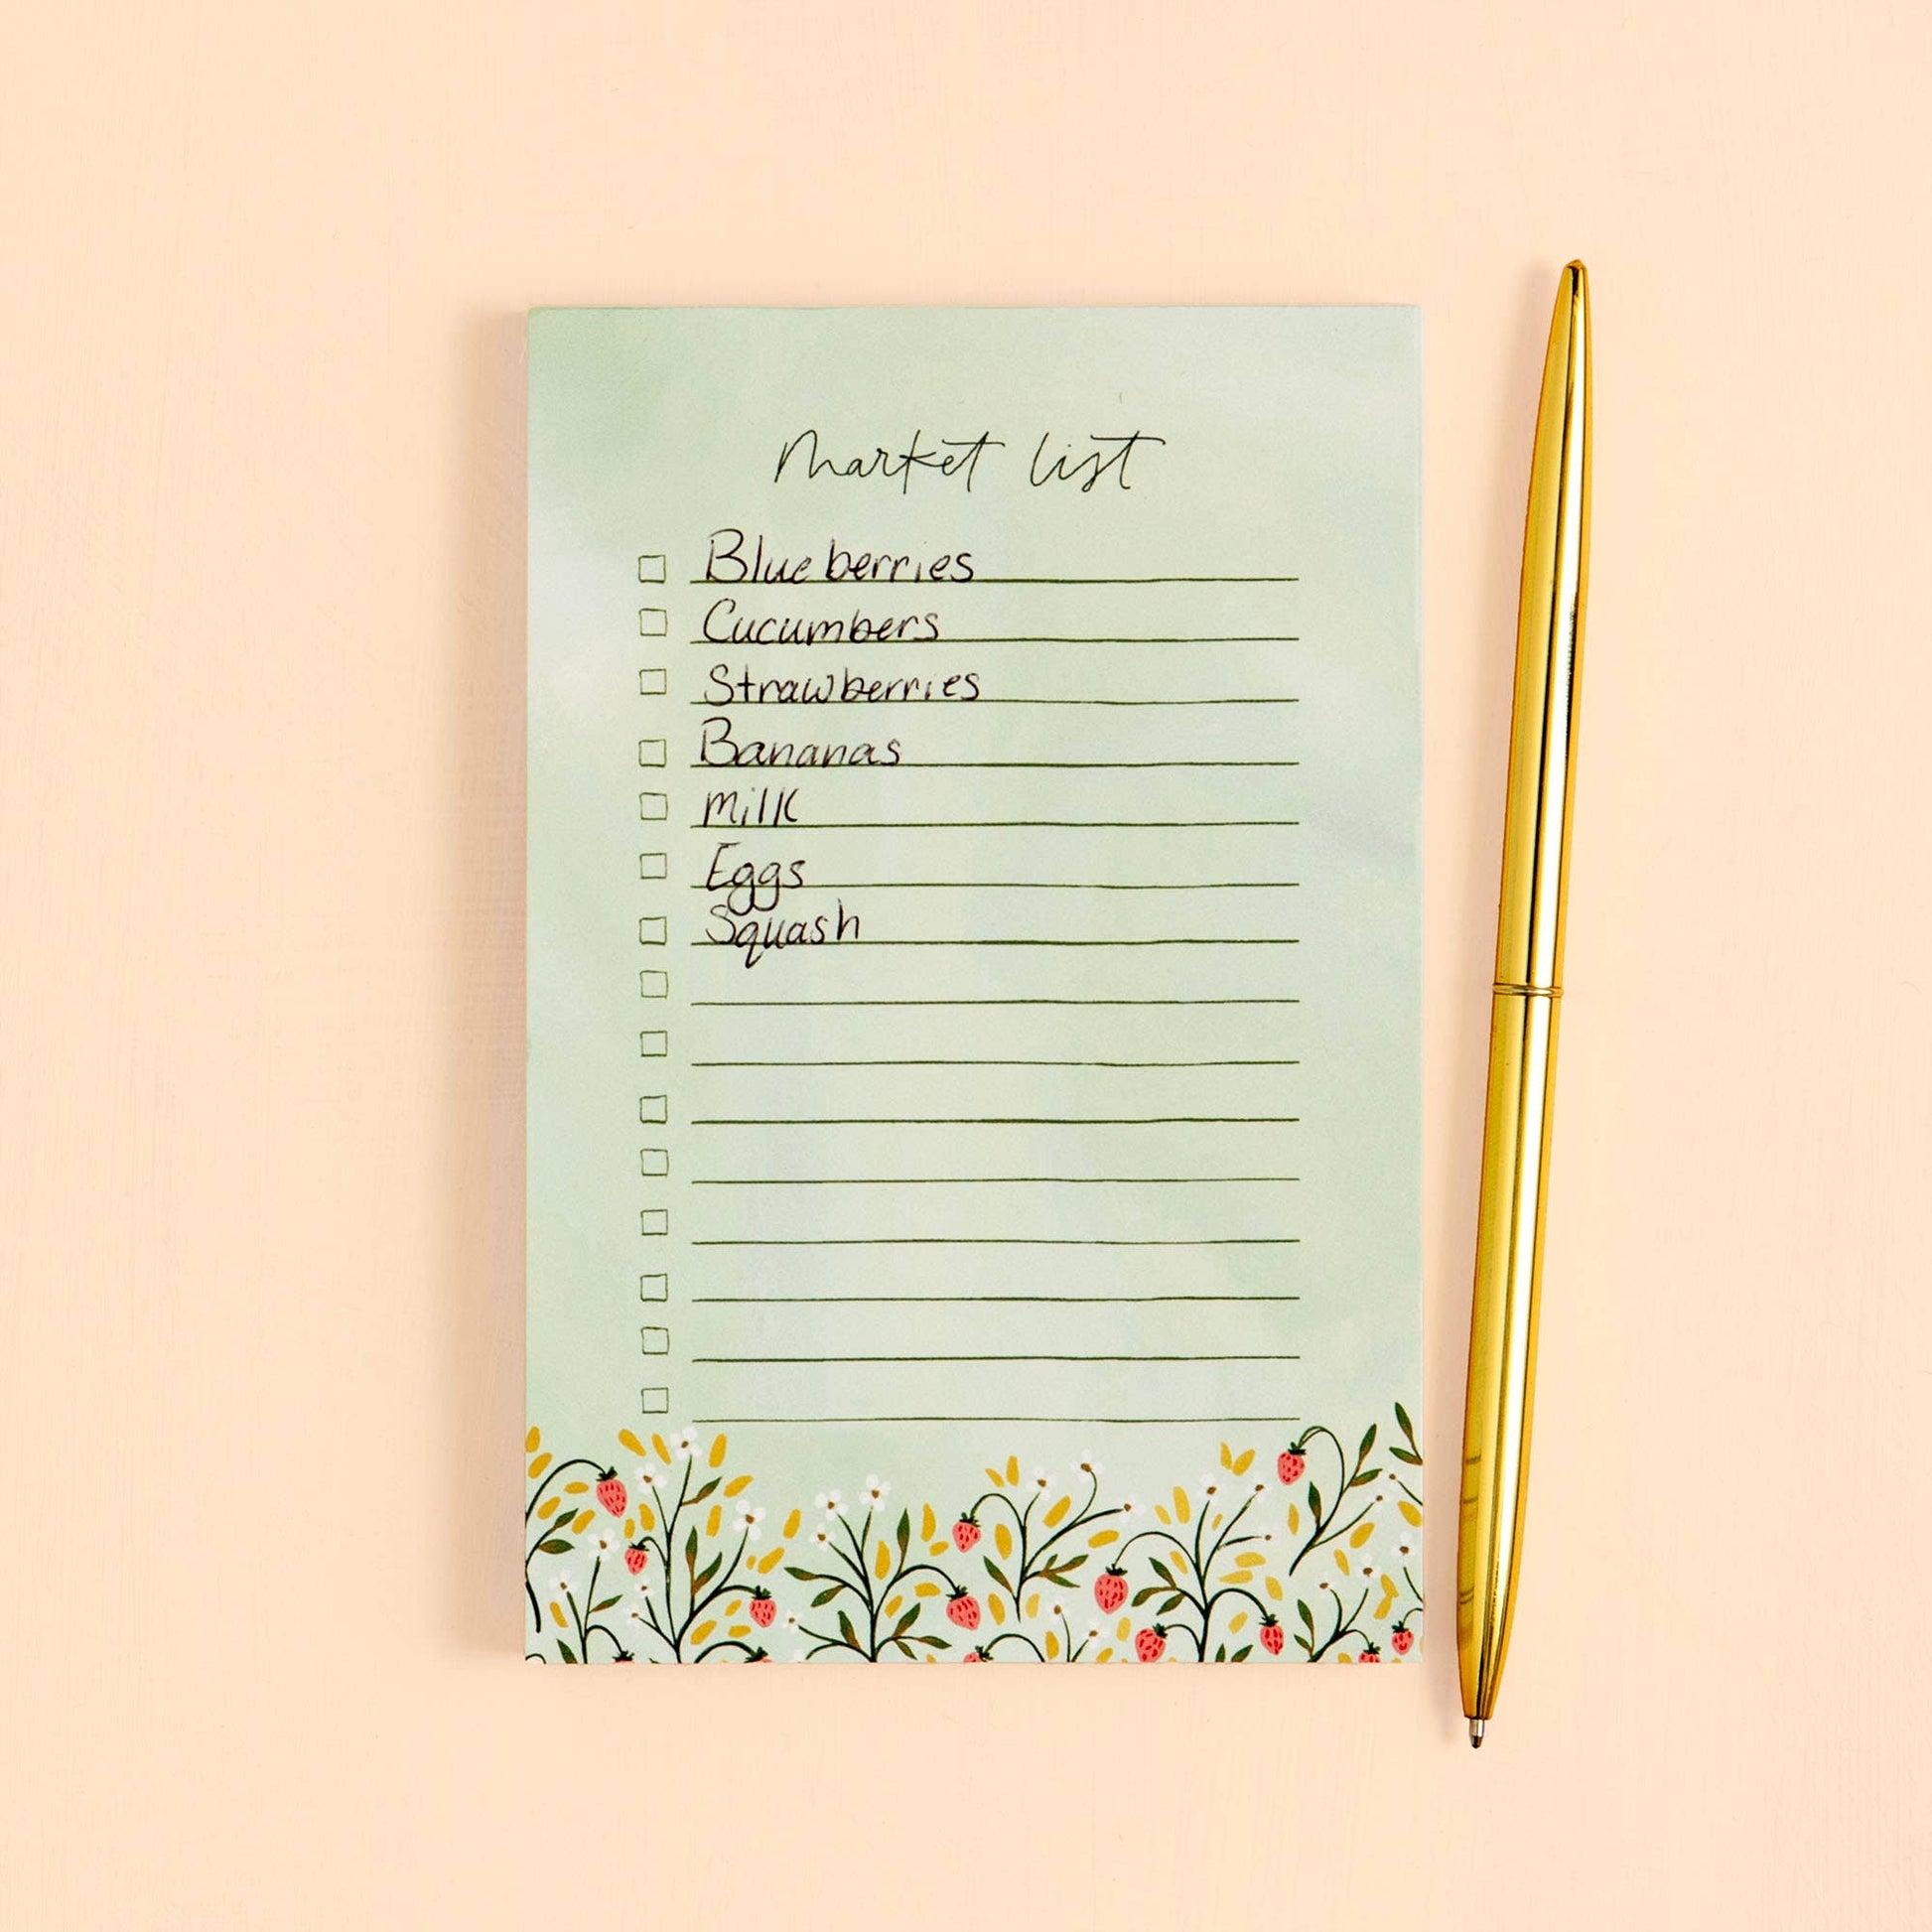 Market list
Blueberries
Cucumbers
Strawberries
Bananas
Milk
Eggs
Squash